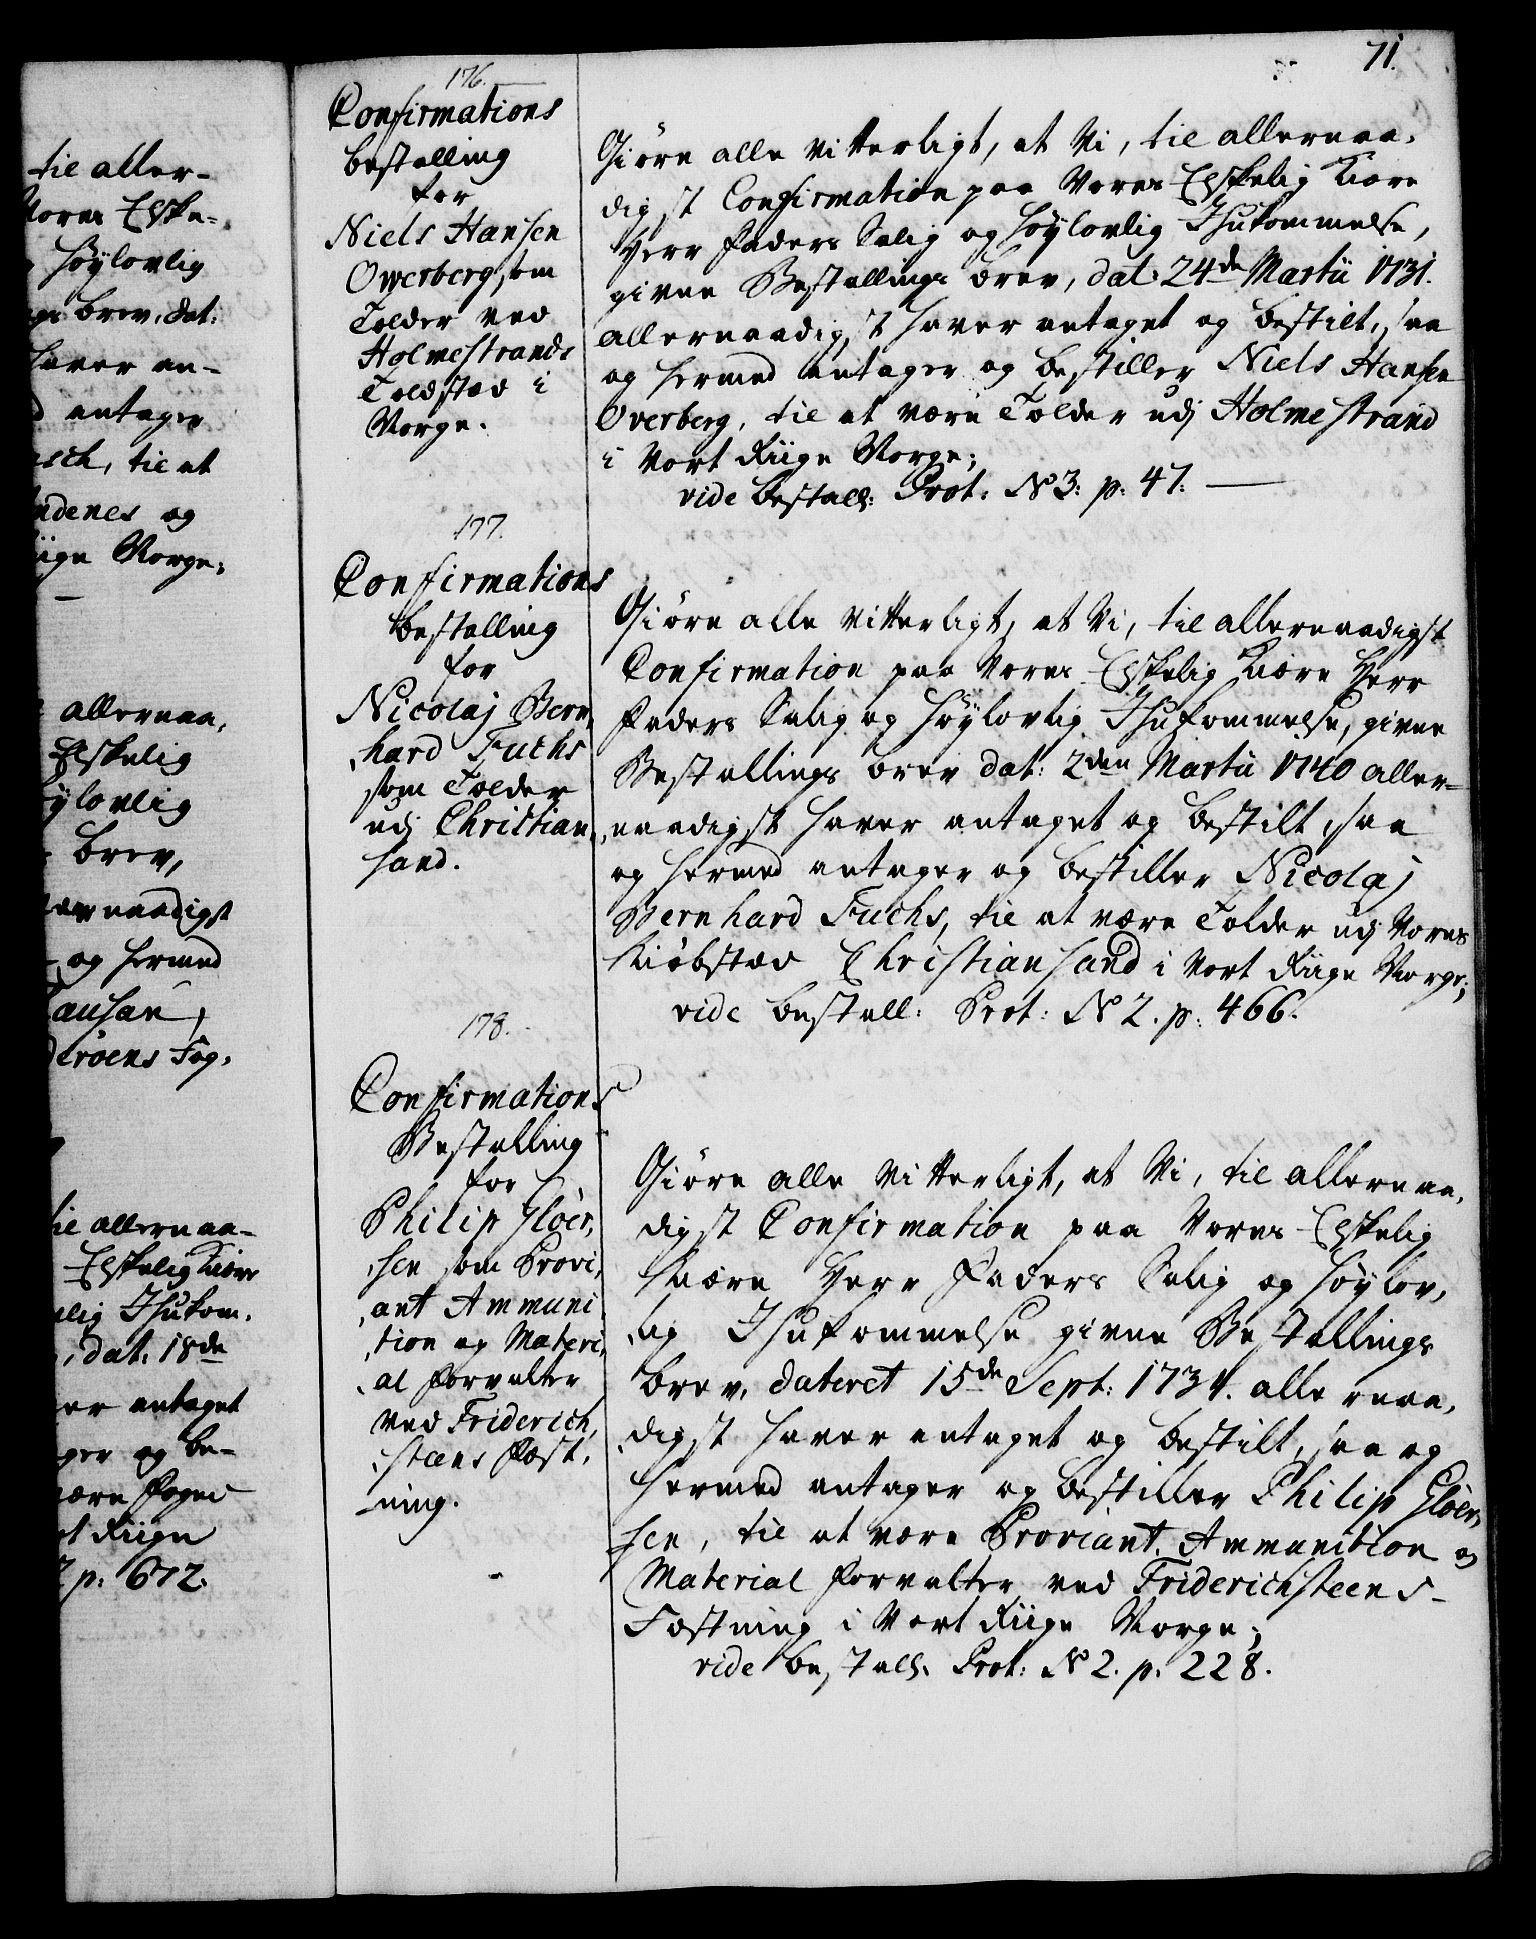 71.
til aller-
Vores Elske-
høylovlig
brev, dat:
haver an-
antager
til at
og
Riige Norge;
allernaa,
Elskelig
høylovlig
brev,
allernaadigst
og hermed
Fog,
til allernaa-
Elskelig Kiære
Ihukom,
dat: 18de
haver antaget
og be-
være Foged
Vort Riige
p: 672.
176.
Confirmations
bestalling
for
Niels Hansen
Owerberg, som
Tolder ved
Holmestrands
Toldsted i
Norge.
Giøre alle Vitterligt, at Vi, til allernaa,
digst Confirmation paa Vores Elskelig Kiære
Herr Faders Salig og Høylovlig Ihukommelse,
givne Bestallings brev, dat: 24de Martii 1731.
allernaadigst haver antaget og bestilt, saa
og hermed antager og bestiller Niels Hansen
Overberg, til at være Tolder udj Holmestrand
i Vort Riige Norge;
vide bestall: Prot: No 3: p: 47.
177.
Confirmations
bestalling
for
Nicolaj Bern,
hard Fuchs
som Tolder
udj Christian,
sand.
Giøre alle Vitterligt, at Vi, til allernaadigst
Confirmation paa Vores Elskelig Kiære Herr
Faders Salig og Høylovlig Ihukommelse, givne
Bestallings brev dat: 2den Martii 1740 aller-
naadigst haver antaget og bestilt, saa
og hermed antager og bestiller Nicolaj
Bernhard Fuchs, til at være Tolder udj Vores
Kiøbsted Christiansand i Vort Riige Norge;
vide bestall: Prot: No 2. p: 466.
178.
Confirmations
Bestalling
for
Philip Gløer,
sen som Provi,
ant Ammuni
tion og Materi,
al Forvalter
ved Friderich,
steens Fæst,
ning.
Giøre alle Vitterligt, at Vi, til allernaa,
digst Confirmation paa Vores Elskelig
Kiære Herr Faders Salig og Høylov,
lig Ihukommelse givne Bestallings
brev, dateret 15de Sept: 1734. allernaa,
digst haver antaget og bestilt, saa og
hermed antager og bestiller Philip Gløer,
sen, til at være Proviant, Ammunition og
Material Forvalter ved Friderichsteens
Fæstning i Vort Riige Norge;
vide bestall: Prot: No 2. p: 228.